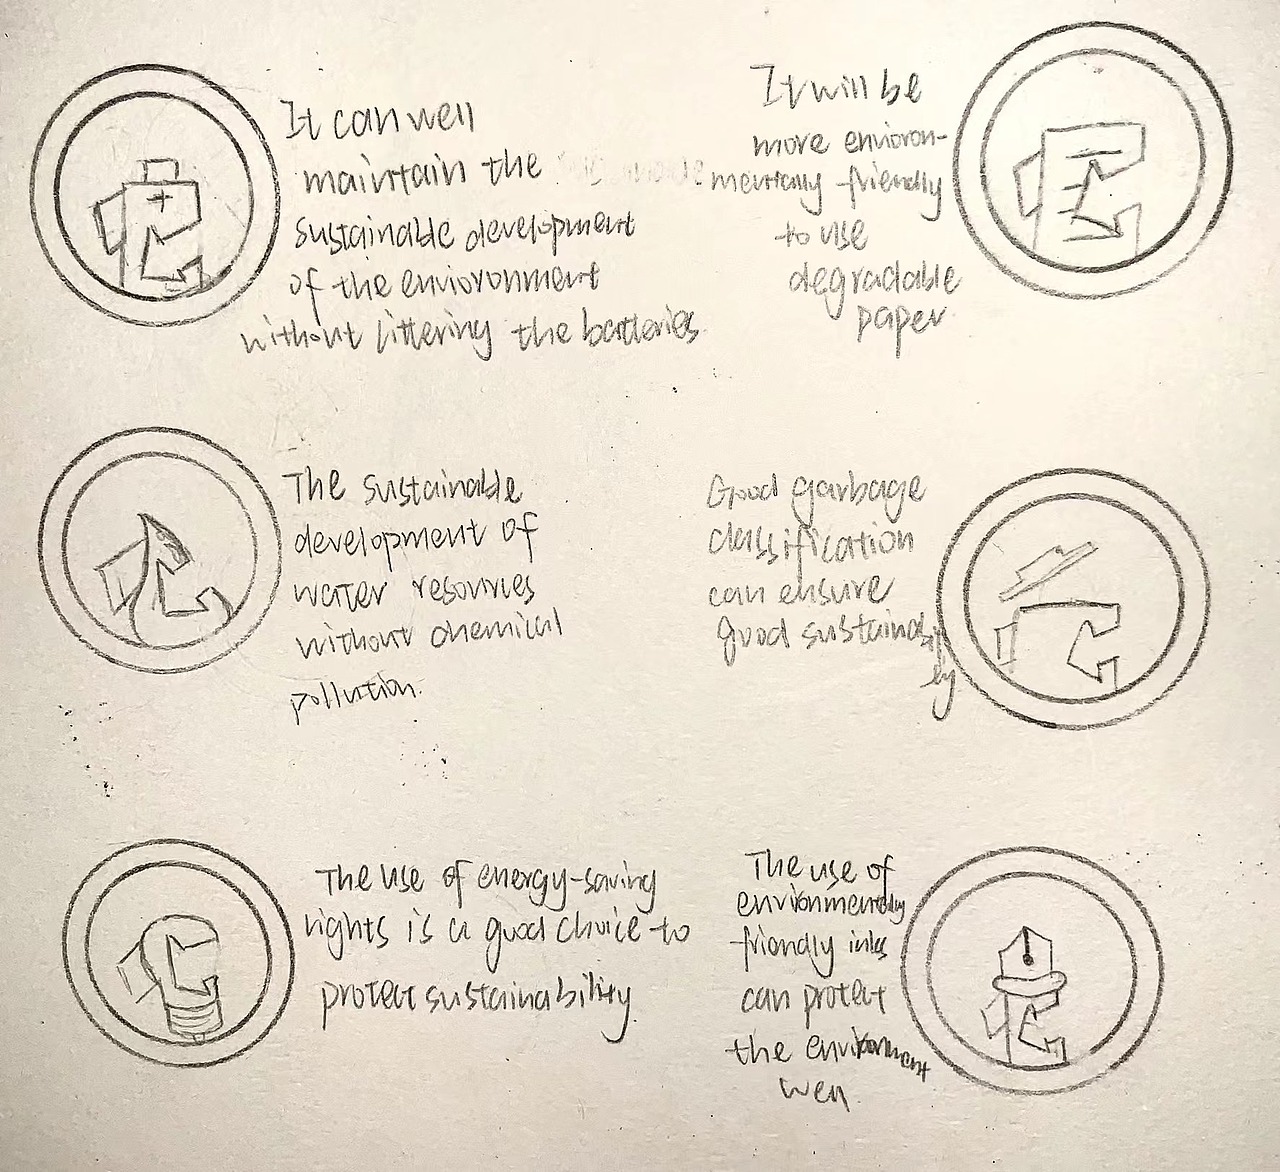 It can well
maintain the
sustainable development
of the environment
without littering the batteries
It will be
more environ-
mentally-friendly
to use
degradable
paper
The sustainable
development of
water resources
without chemical
pollution.
Good garbage
classification
can ensure
good sustainabi
The use of energy-saving
lights is a good choice to
protect sustainability.
The use of
environmentally
friendly inks
can protect
the environment
well